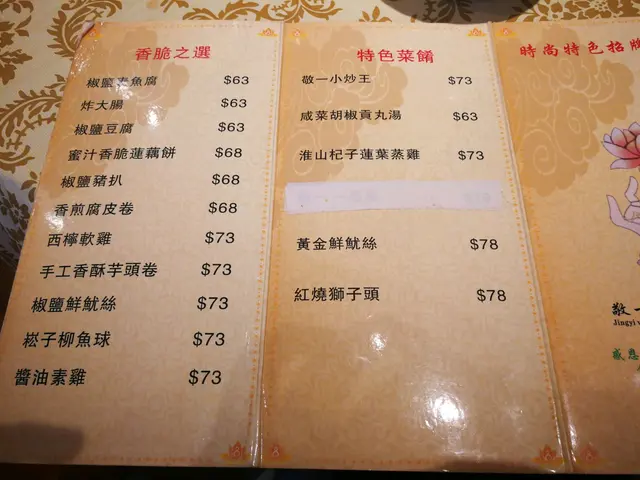 香脆之選
椒鹽素魚腐 $63
炸大腸 $63
椒鹽豆腐 $63
蜜汁香脆蓮藕餅 $68
椒鹽豬扒 $68
香煎腐皮卷 $68
西檸軟雞 $73
手工香酥芋頭卷 $73
椒鹽鮮魷絲 $73
崧子柳魚球 $73
醬油素雞 $73
特色菜餚
敬一小炒王 $73
咸菜胡椒貢丸湯 $63
淮山杞子蓮葉蒸雞 $73
黃金鮮魷絲 $78
紅燒獅子頭 $78
時尚特色招牌
敬一
Jingyi
感恩